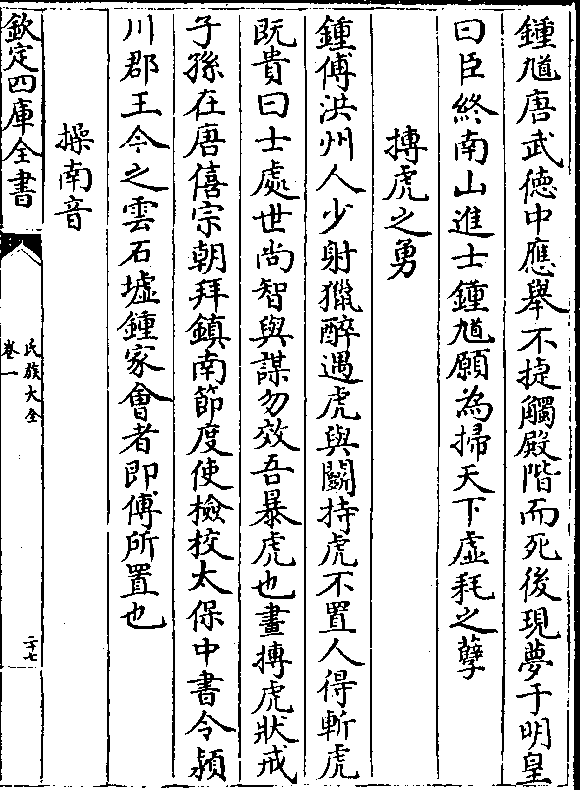 鍾馗唐武德中應舉不捷觸殿階而死後現夢于明皇
曰臣終南山進士鍾馗願為掃天下虛耗之孽
搏虎之勇
鍾傳洪州人少射獵醉遇虎與鬭持虎不置人得斬虎
既貴曰士處世尚智與謀勿效吾暴虎也畫搏虎狀戒
子孫在唐僖宗朝拜鎮南節度使檢校太保中書令潁
川郡王今之雲石墟鍾家會者即傅所置也
操南音
欽定四庫全書
氏族大全
卷一
二十七